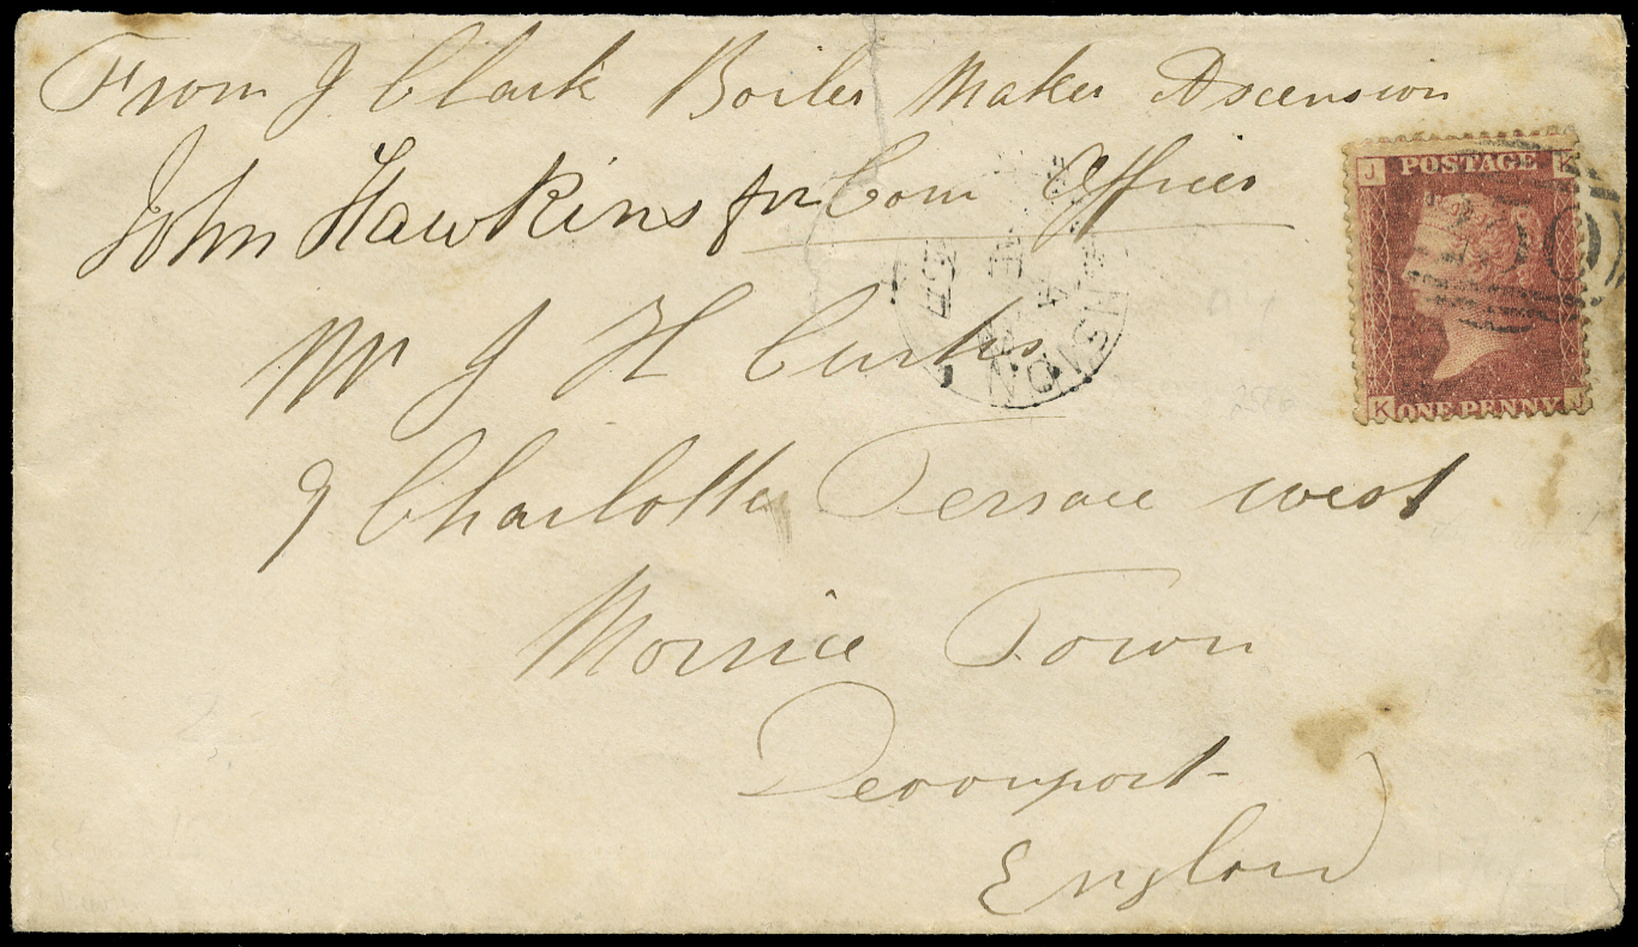 From J Clark Boiler Maker Ascension
John Hawkins for Com Officer
Mr J H Curtis
9 Charlotte Terrace west
Morrice Town
Devonport
England
J POSTAGE K
K ONE PENNY J